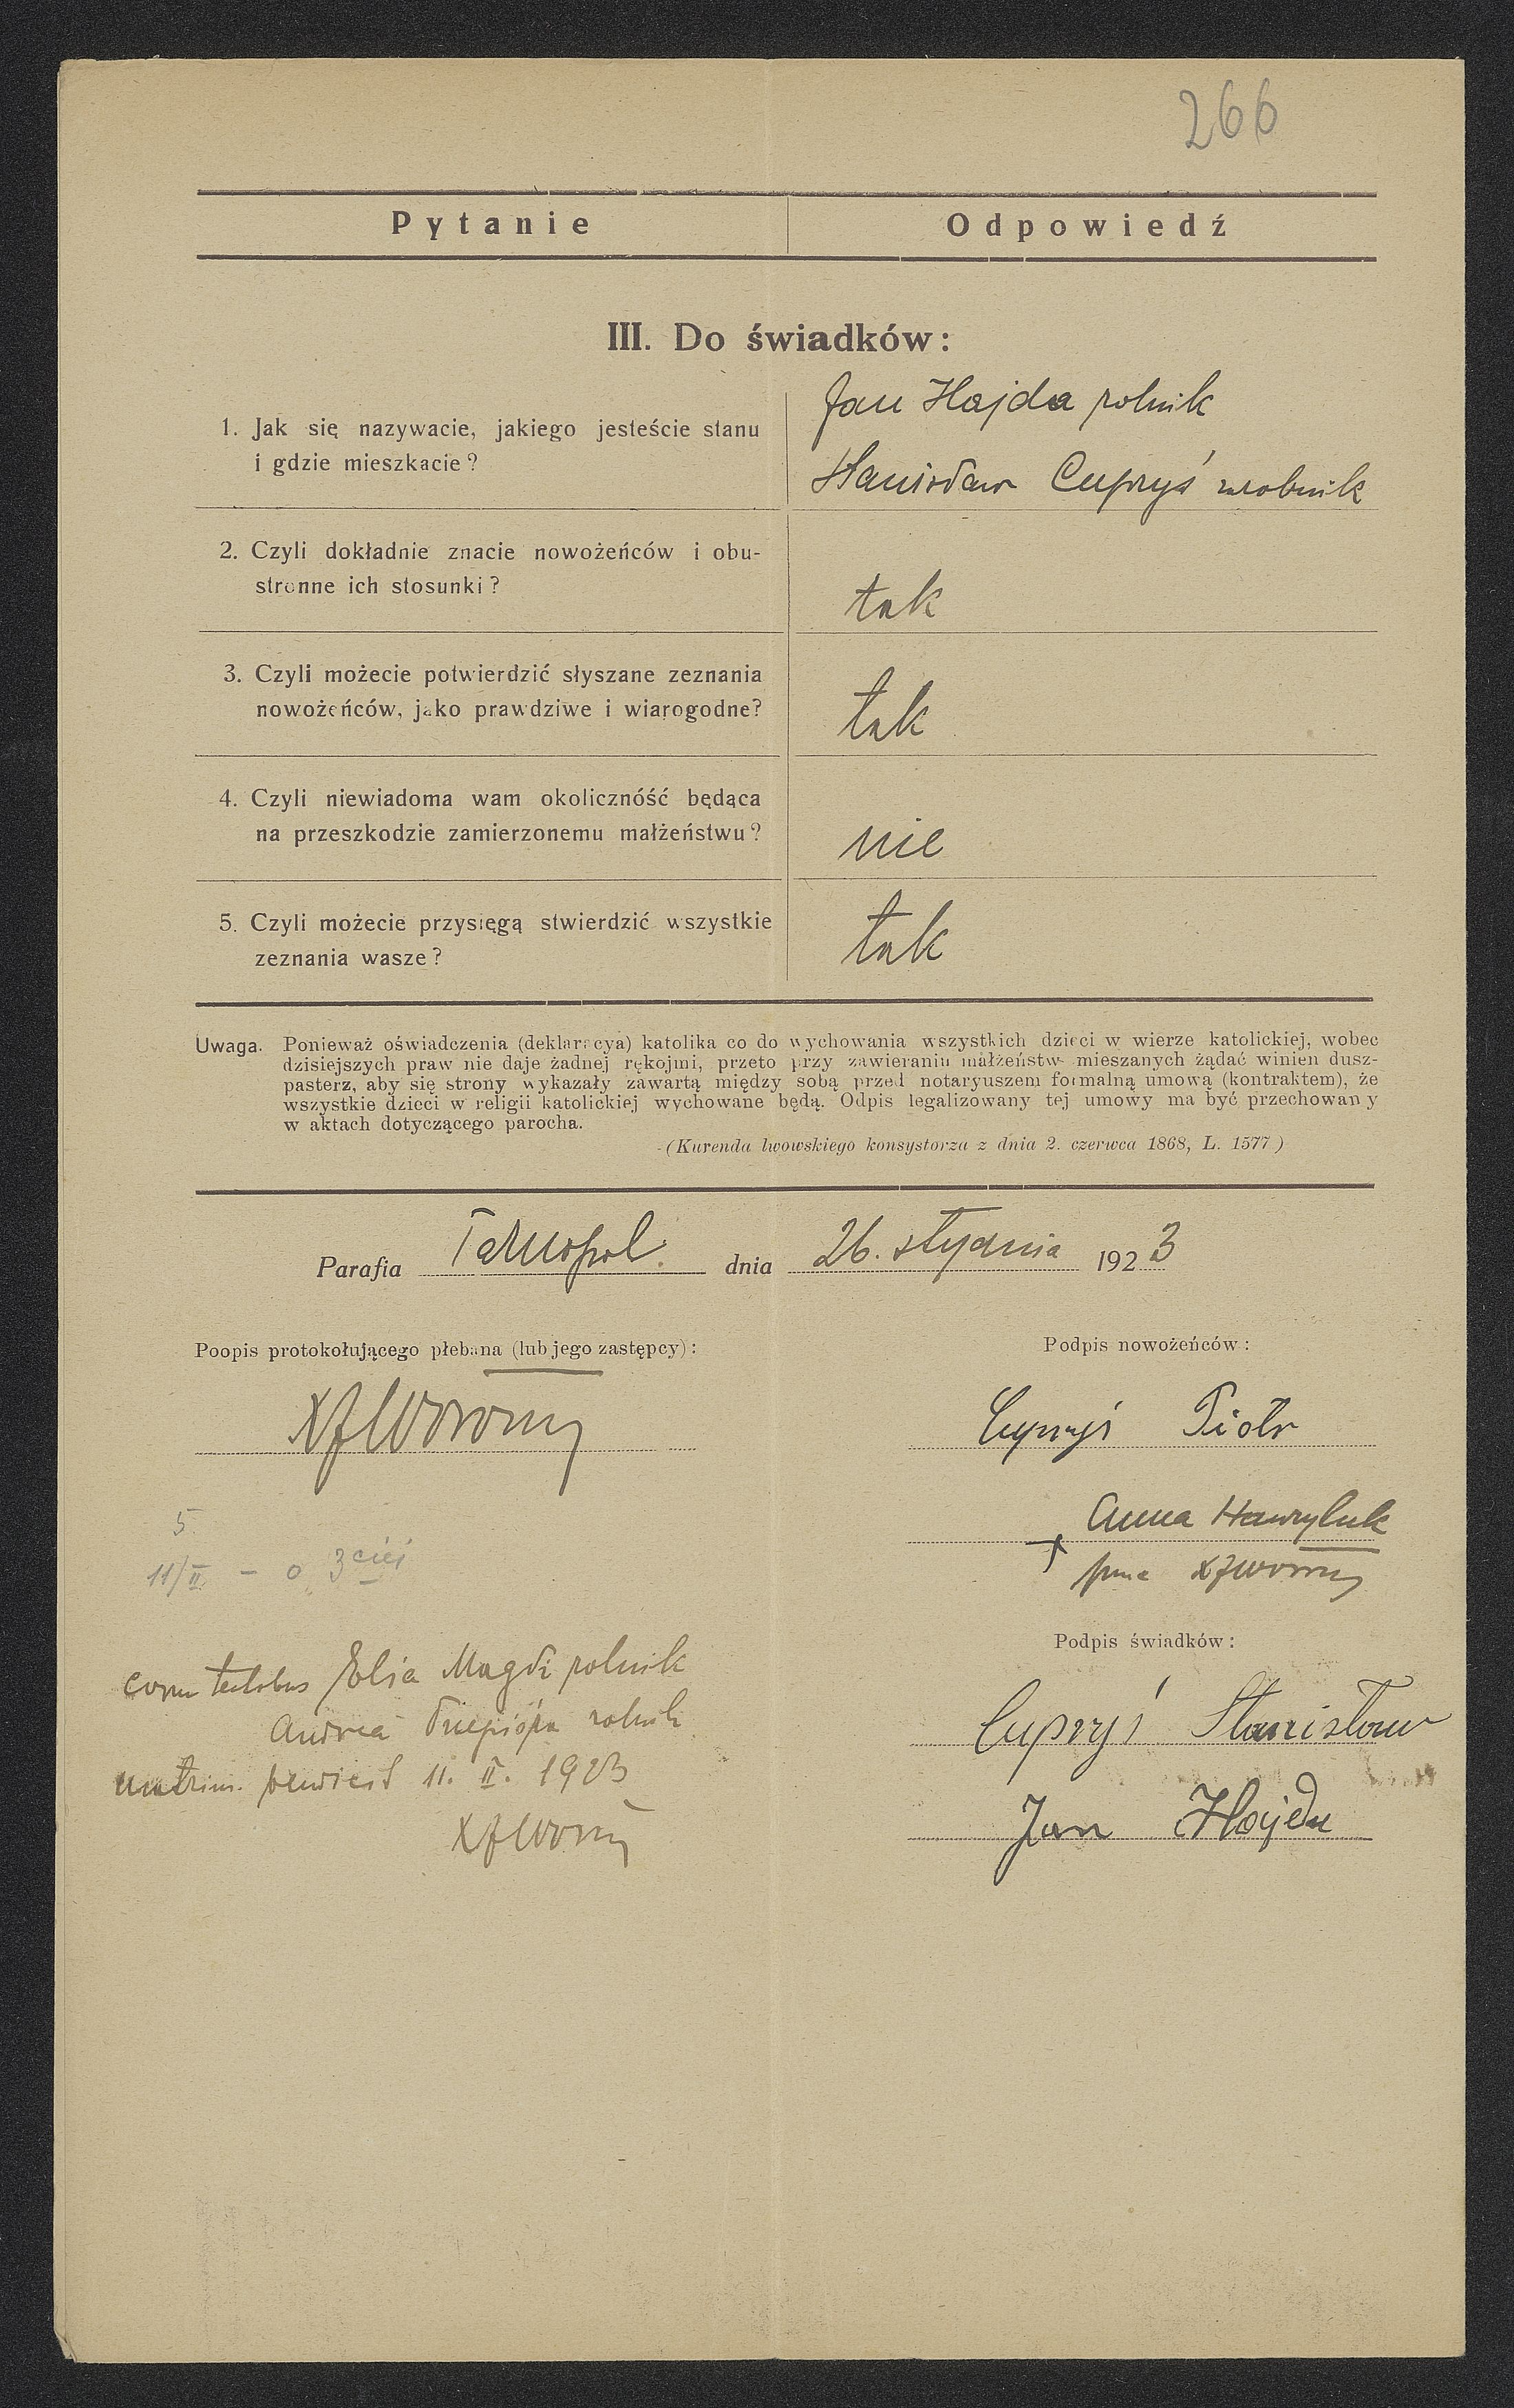 266
Pytanie
Odpowiedź
III. Do świadków:
1. Jak się nazywacie, jakiego jesteście stanu
i gdzie mieszkacie?
Jan Hajda rolnik
Stanisław Cupryś zarobnik
2. Czyli dokładnie znacie nowożeńców i obu-
stronne ich stosunki?
tak
3. Czyli możecie potwierdzić słyszane zeznania
nowożeńców, jako prawdziwe i wiarogodne?
tak
4. Czyli niewiadoma wam okolicznóść będąca
na przeszkodzie zamierzonemu małżeństwu?
nie
5. Czyli możecie przysięgą stwierdzić wszystkie
zeznania wasze?
tak
Uwaga. Ponieważ oświadczenia (deklaracya) katolika co do wychowania wszystkich dzieci w wierze katolickiej, wobec
dzisiejszych praw nie daje żadnej rękojmi, przeto przy zawieraniu małżeństw mieszanych żądać winien dusz-
pasterz, aby się strony wykazały zawartą między sobą przed notaryuszem formalną umową (kontraktem), że
wszystkie dzieci w religii katolickiej wychowane będą. Odpis legalizowany tej umowy ma być przechowany
w aktach dotyczącego parocha.
(Kurenda lwowskiego konsystorza z dnia 2. czerwca 1868, L. 1577)
Parafia Tarnopol. dnia 26. stycznia 1923
Poopis protokołującego plebana (lub jego zastępcy):
Podpis nowożeńców:
Cupryś Piotr
Anna Hawryluk
Podpis świadków:
5
11/II - o 3ciej
Cupryś Stanisław
Jan Hajda
coram testibus Elia rolnik
Andrea rolnik
matrim. 11. II. 1923